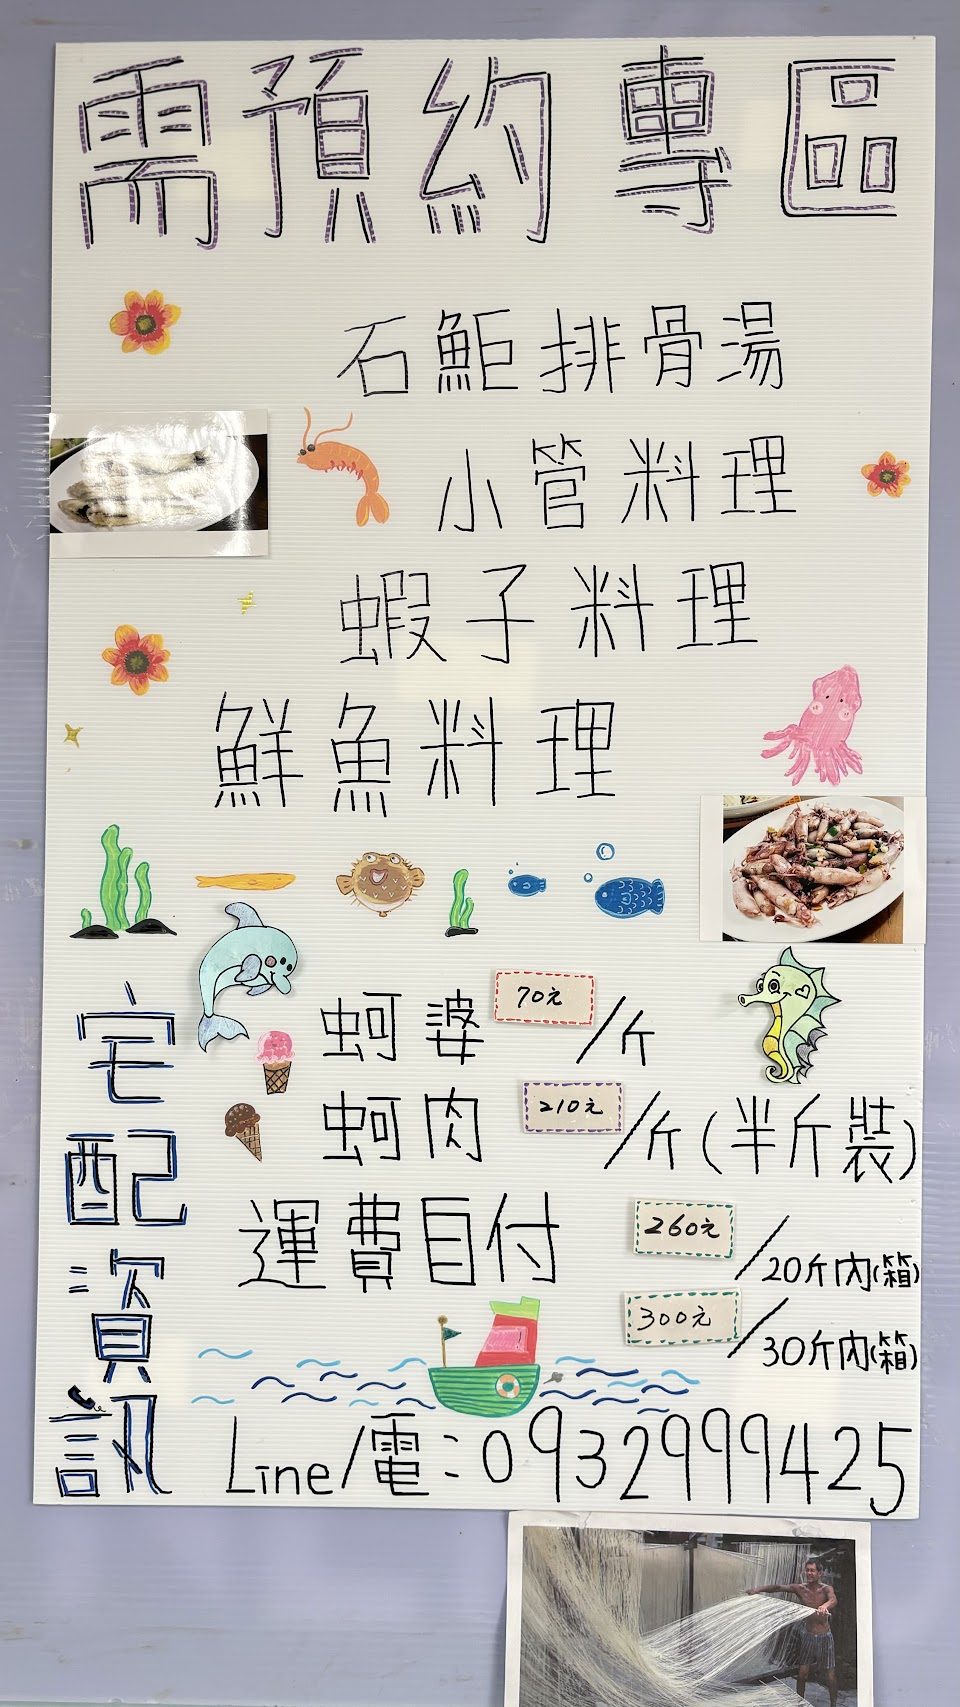 需預約專區
石鮔排骨湯
小管料理
蝦子料理
鮮魚料理
宅配資訊
蚵婆 70元/斤
蚵肉 210元/斤(半斤裝)
運費自付 260元/20斤內(箱)
300元/30斤內(箱)
Line/電:0932999425